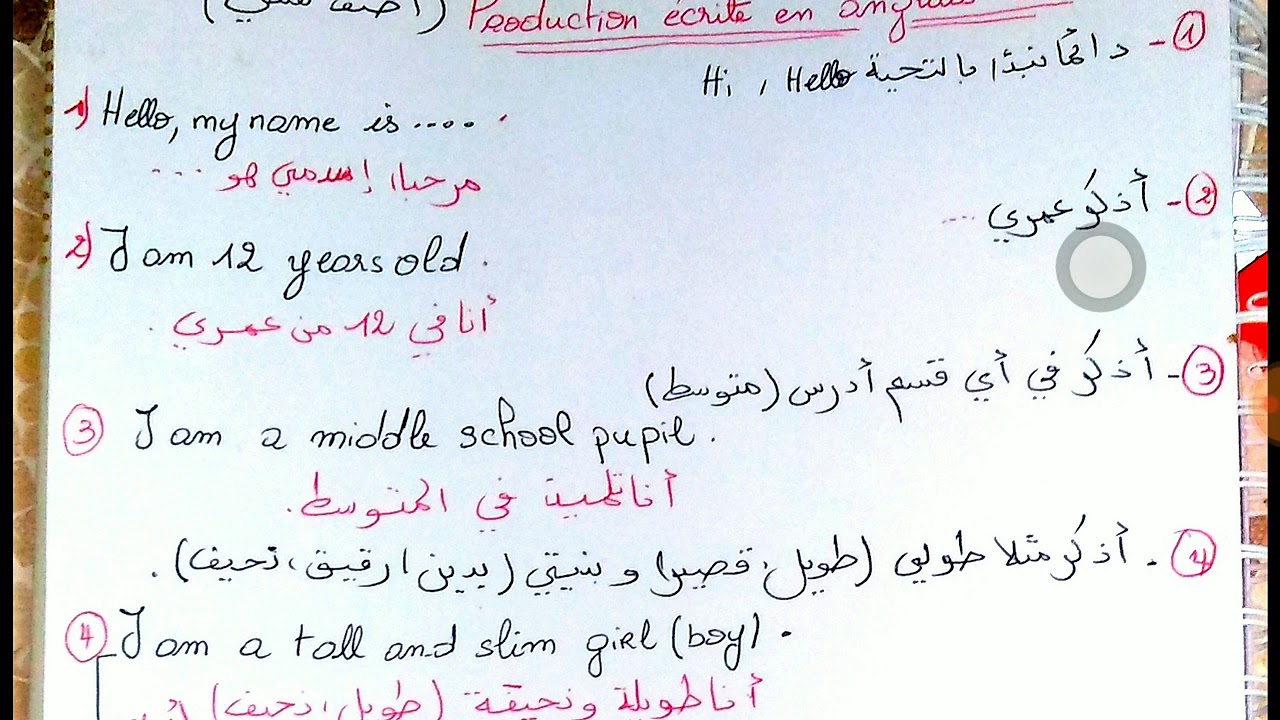 Production écrite en anglais (أصف نفسي)
1 - دائما نبدأ بالتحية Hi, Hello
1) Hello, my name is .....
مرحبا، إسمي هو ...
2 - أذكر عمري ....
2) I am 12 years old.
أنا في 12 من عمري.
3 - أذكر في أي قسم أدرس (متوسط)
3 I am a middle school pupil.
أنا تلمية في المتوسط.
4 - أذكر مثلا طولي (طويل، قصير) و بنيتي (بدين / رقيق، نحيف).
4 I am a tall and slim girl (boy).
أنا طويلة ونحيفة (طويل، نحيف)